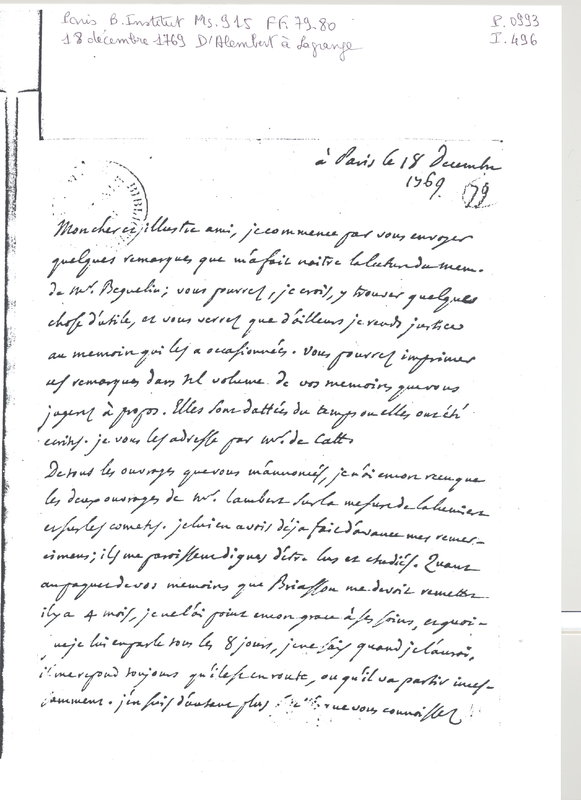 Paris B. Institut Ms. 915 FF. 79-80
P. 0993
18 décembre 1769 D'Alembert à Lagrange
I. 496
à Paris le 18 Decembre
1769
79
Mon cher et illustre ami, je commence par vous envoyer
quelques remarques que m'a fait naitre la lecture du mem.
de Mr. Beguelin; vous pourrez, je crois, y trouver quelque
chose d'utile, et vous verrez que d'ailleurs je rends justice
au memoire qui les a occasionnées. Vous pourrez imprimer
ces remarques dans tel volume de vos memoires que vous
jugerez à propos. Elles sont dattées du temps ou elles ont été
ecrites. je vous les adresse par Mr. de Catt.
De tous les ouvrages que vous m'annoncés, je n'ai encor recu que
les deux ouvrages de Mr. Lambert sur la mesure de la lumiere
et sur les cometes. je lui en avois déja fait d'avance mes remer-
cimens; ils me paroissent dignes d'être lus et etudiés. Quant
au paquet de vos memoires que Briasson me devoit remettre
il y a 4 mois, je ne l'ai point encor grace à ses soins, et quoi-
que je lui en parle tous les 8 jours, je ne sais quand je l'aurai,
il me repond toujours qu'il est en route, ou qu'il va partir inces-
samment. j'en suis d'autant plus que vous connoissez